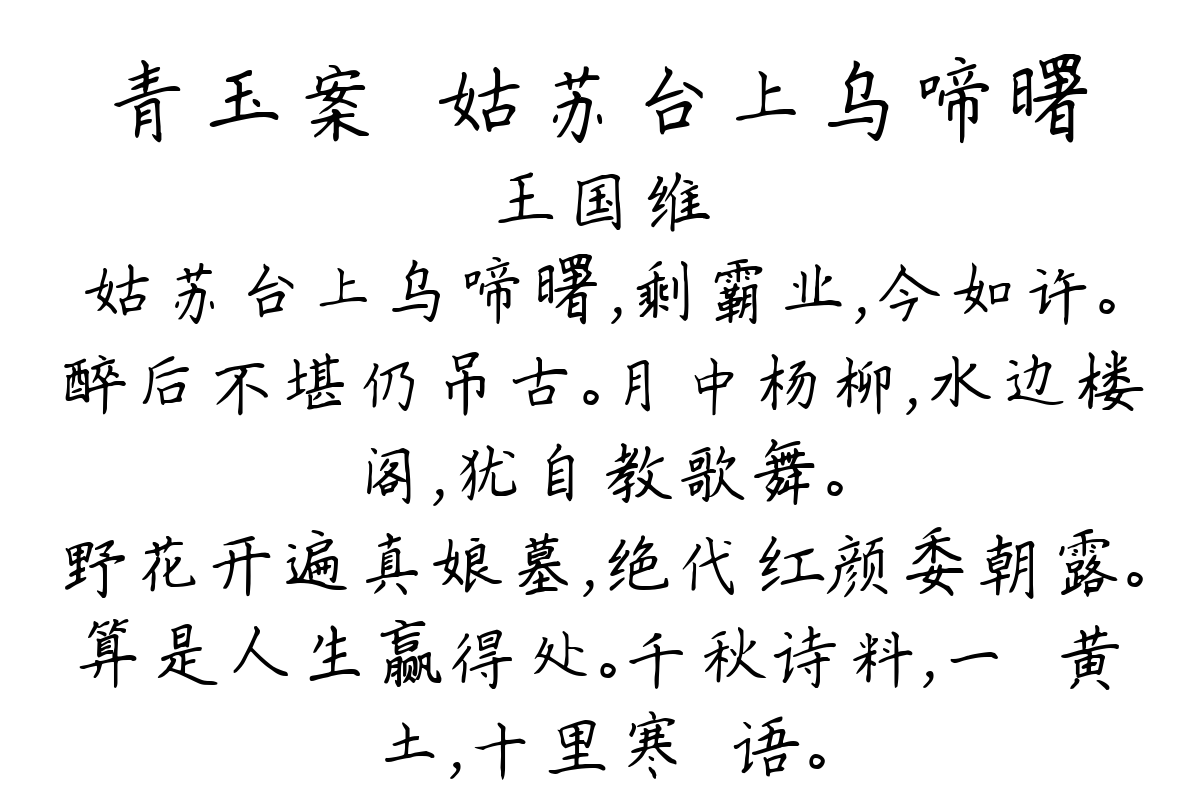 青玉案 姑苏台上乌啼曙
王国维
姑苏台上乌啼曙,剩霸业,今如许。
醉后不堪仍吊古。月中杨柳,水边楼
阁,犹自教歌舞。
野花开遍真娘墓,绝代红颜委朝露。
算是人生赢得处。千秋诗料,一 黄
土,十里寒 语。